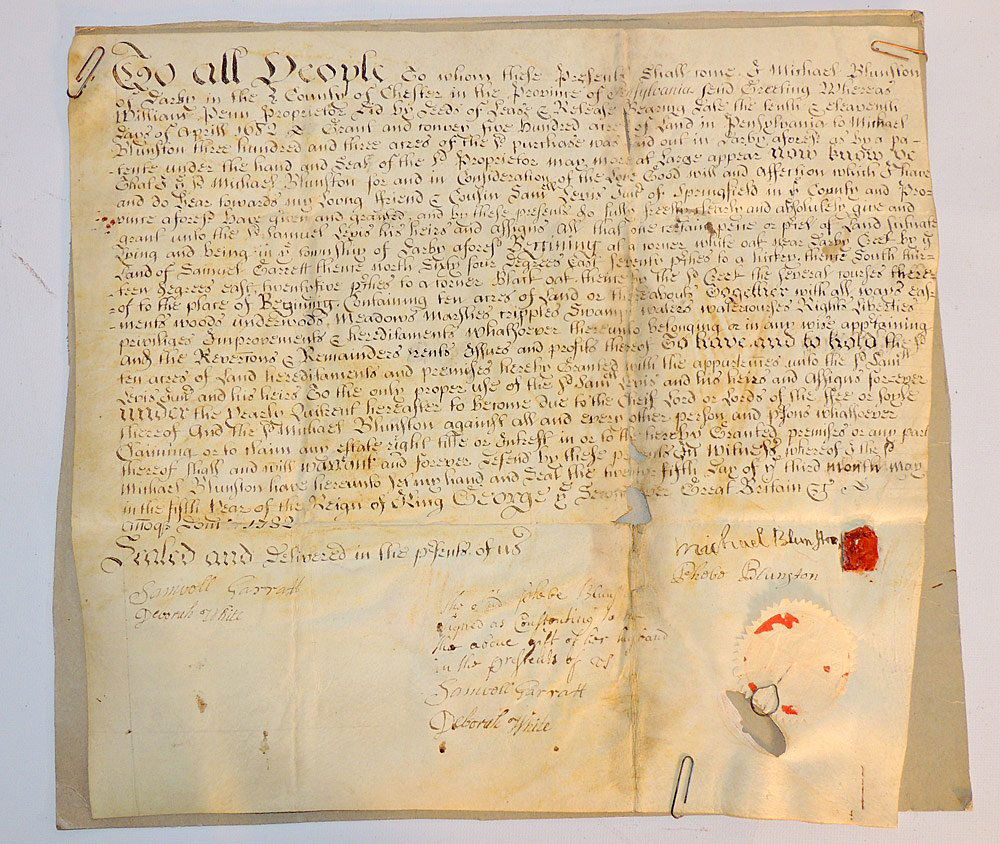 To all People To whom these Presents Shall come I Michael Blunston
of Darby in the County of Chester in the Province of Pensylvania send Greeting Whereas
William Penn Proprietor Did by Deeds of Lease & Release Bearing date the tenth & eleaventh
days of Aprill 1682 Grant and convey five hundred acres of Land in Pensylvania to Michael
Blunston three hundred and three acres of the sd purchase was laid out in Darby aforesd as by a pa-
-tente under the hand and Seal of the sd Proprietor may more at Large appear Now know ye
that I ye sd Michael Blunston for and in Consideration of the Love Good will and Affection which I have
and do bear towards my Loving friend & Cousin Samll Lewis Junr of Springfield in ye County and Pro-
-vince aforesd have given and granted and by these presents do fully freely clearly and absolutely give and
grant unto the sd Samuel Lewis his heirs and assigns all that one certain peice or psel of Land Situate
Lying and being in ye township of Darby aforesd Begining at a corner white oak near Darby Creek by ye
Land of Samuel Garrett thence north Sixty four degrees East Seventy pches to a hickry thence South thir-
-teen degrees east twentyfive pches to a corner Black oak thence by the sd Creek the several courses there-
-of to the place of Begining Containing ten acres of Land or thereabouts Together with all ways eas-
-ments woods underwoods Meadows Marshes cripples Swamps waters watercourses Rights Liberties
priviliges Improvements & hereditaments Whatsoever thereunto belonging or in any wise apptaining
and the Reversions & Remainders rents Issues and profits thereof To have and to hold the sd
ten acres of Land hereditaments and premises hereby Granted with the appurtences unto the sd Samll
Lewis Junr and his heirs To the only proper use of the sd Saml Lewis and his heirs and Assigns forever
under the Yearly Quitrent hereafter to become Due to the Cheif Lord or Lords of the fee or
thereof And the sd Michael Blunston against all and every other person and psons whatsoever
Claiming or to Claim any estate right title or Intrest in or to the hereby Granted premises or any part
thereof shall and will warrant and forever defend by these presents In Witness whereof I the sd
Michael Blunston have hereunto set my hand and Seal the twenty fifth day of ye third month May
in the fifth Year of the Reign of King George ye Second over Great Britain &c
Annoq Dom 1732
Sealed and Delivered in the psents of us
Michael Blunston
Phebe Blunston
Samuell Garratt
Deborah White
The sd Phebe Blun
signed as Consenting to the
the above gift of her husband
in the presents of us
Samuell Garratt
Deborah White